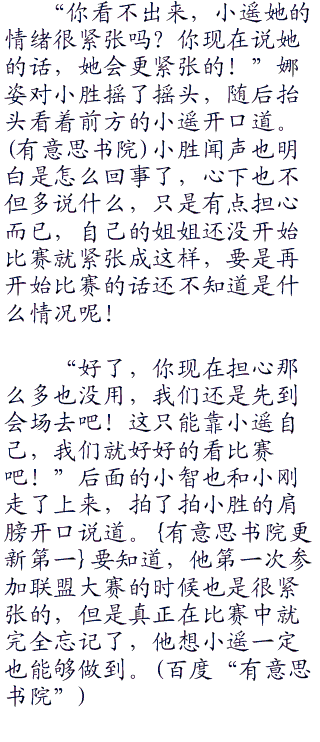 “你看不出来，小遥她的
情绪很紧张吗？你现在说她
的话，她会更紧张的！”娜
姿对小胜摇了摇头，随后抬
头看着前方的小遥开口道。
(有意思书院)小胜闻声也明
白是怎么回事了，心下也不
但多说什么，只是有点担心
而已，自己的姐姐还没开始
比赛就紧张成这样，要是再
开始比赛的话还不知道是什
么情况呢！
“好了，你现在担心那
么多也没用，我们还是先到
会场去吧！这只能靠小遥自
己，我们就好好的看比赛
吧！”后面的小智也和小刚
走了上来，拍了拍小胜的肩
膀开口说道。{有意思书院更
新第一}要知道，他第一次参
加联盟大赛的时候也是很紧
张的，但是真正在比赛中就
完全忘记了，他想小遥一定
也能够做到。(百度“有意思
书院”)